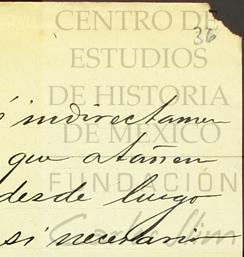 CENTRO DE
36
ESTUDIOS
DE HISTORIA
indirectamen
DE MÉXICO
que atañen
FUNDACIÓN
desde luego
Carlos Slim
si necesario